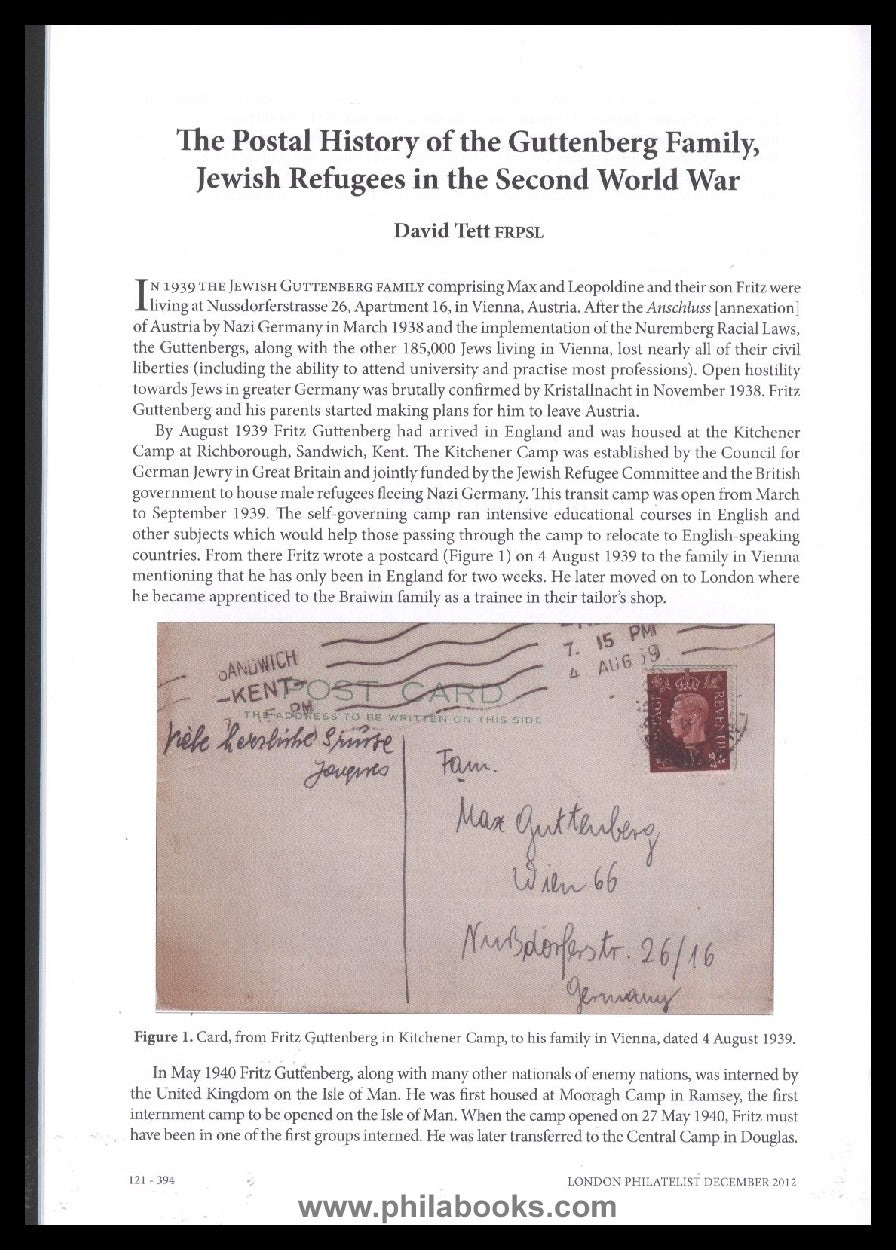 The Postal History of the Guttenberg Family,
Jewish Refugees in the Second World War
David Tett FRPSL
IN 1939 THE JEWISH GUTTENBERG FAMILY comprising Max and Leopoldine and their son Fritz were
living at Nussdorferstrasse 26, Apartment 16, in Vienna, Austria. After the Anschluss [annexation]
of Austria by Nazi Germany in March 1938 and the implementation of the Nuremberg Racial Laws,
the Guttenbergs, along with the other 185,000 Jews living in Vienna, lost nearly all of their civil
liberties (including the ability to attend university and practise most professions). Open hostility
towards Jews in greater Germany was brutally confirmed by Kristallnacht in November 1938. Fritz
Guttenberg and his parents started making plans for him to leave Austria.
By August 1939 Fritz Guttenberg had arrived in England and was housed at the Kitchener
Camp at Richborough, Sandwich, Kent. The Kitchener Camp was established by the Council for
German Jewry in Great Britain and jointly funded by the Jewish Refugee Committee and the British
government to house male refugees fleeing Nazi Germany. This transit camp was open from March
to September 1939. The self-governing camp ran intensive educational courses in English and
other subjects which would help those passing through the camp to relocate to English-speaking
countries. From there Fritz wrote a postcard (Figure 1) on 4 August 1939 to the family in Vienna
mentioning that he has only been in England for two weeks. He later moved on to London where
he became apprenticed to the Braiwin family as a trainee in their tailor's shop.
SANDWICH
KENT
7. 15 PM
4 AUG 39
POST CARD
THE ADDRESS TO BE WRITTEN ON THIS SIDE
POSTAGE REVENUE
Viele herzliche Grüsse
Fam.
Max Guttenberg
Wien 66
Nußdorferstr. 26/16
Germany
Figure 1. Card, from Fritz Guttenberg in Kitchener Camp, to his family in Vienna, dated 4 August 1939.
In May 1940 Fritz Guttenberg, along with many other nationals of enemy nations, was interned by
the United Kingdom on the Isle of Man. He was first housed at Mooragh Camp in Ramsey, the first
internment camp to be opened on the Isle of Man. When the camp opened on 27 May 1940, Fritz must
have been in one of the first groups interned. He was later transferred to the Central Camp in Douglas.
121 - 394
LONDON PHILATELIST DECEMBER 2012
www.philabooks.com